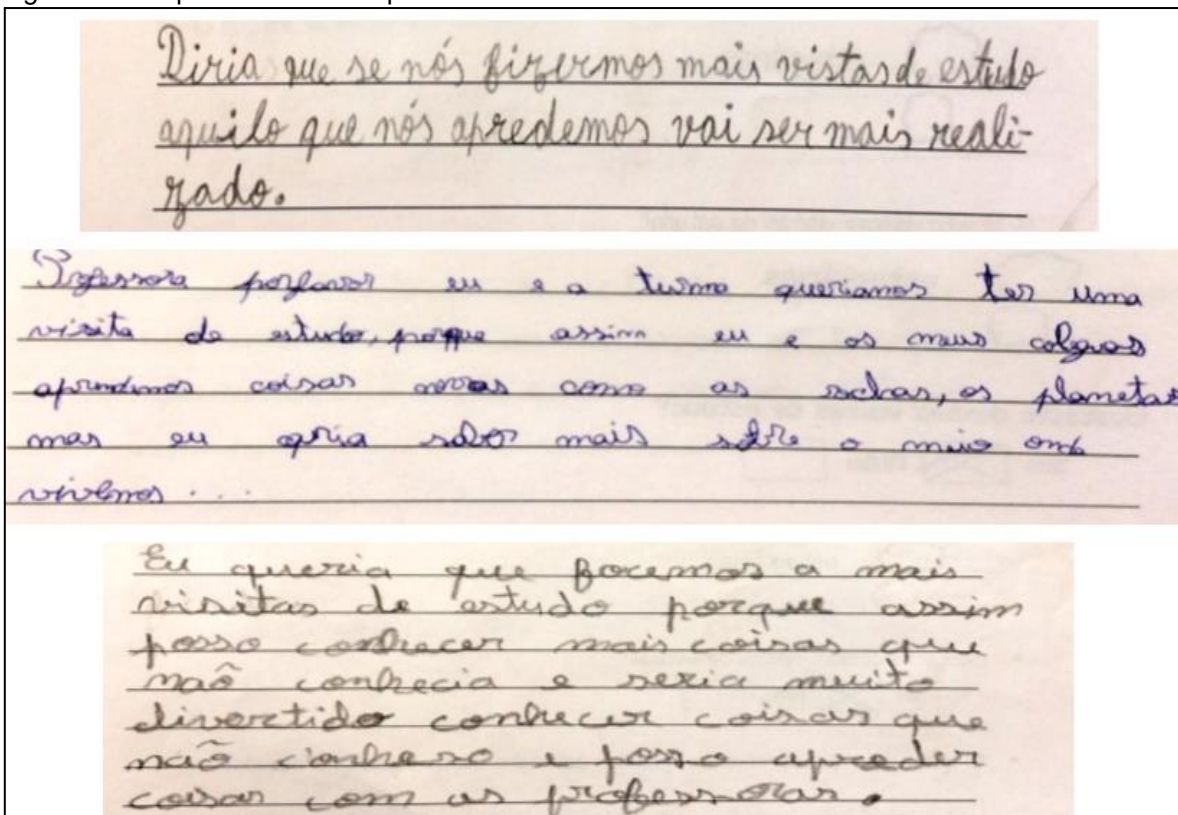 Diria que se nós fizermos mais vistas de estudo
aquilo que nós apredemos vai ser mais reali-
zado.
Professora porfavor eu e a turma queriamos ter uma
visita de estudo, porque assim eu e os meus colegas
aprendemos coisas novas como as rochas, os planetas
mas eu qria saber mais sobre o meio onde
vivemos...
Eu queria que focemos a mais
visitas de estudo porque assim
posso conhecer mais coisas que
não conhecia e seria muito
divertido conhecer coisas que
não conheso e posso apreder
coisas com as professoras.